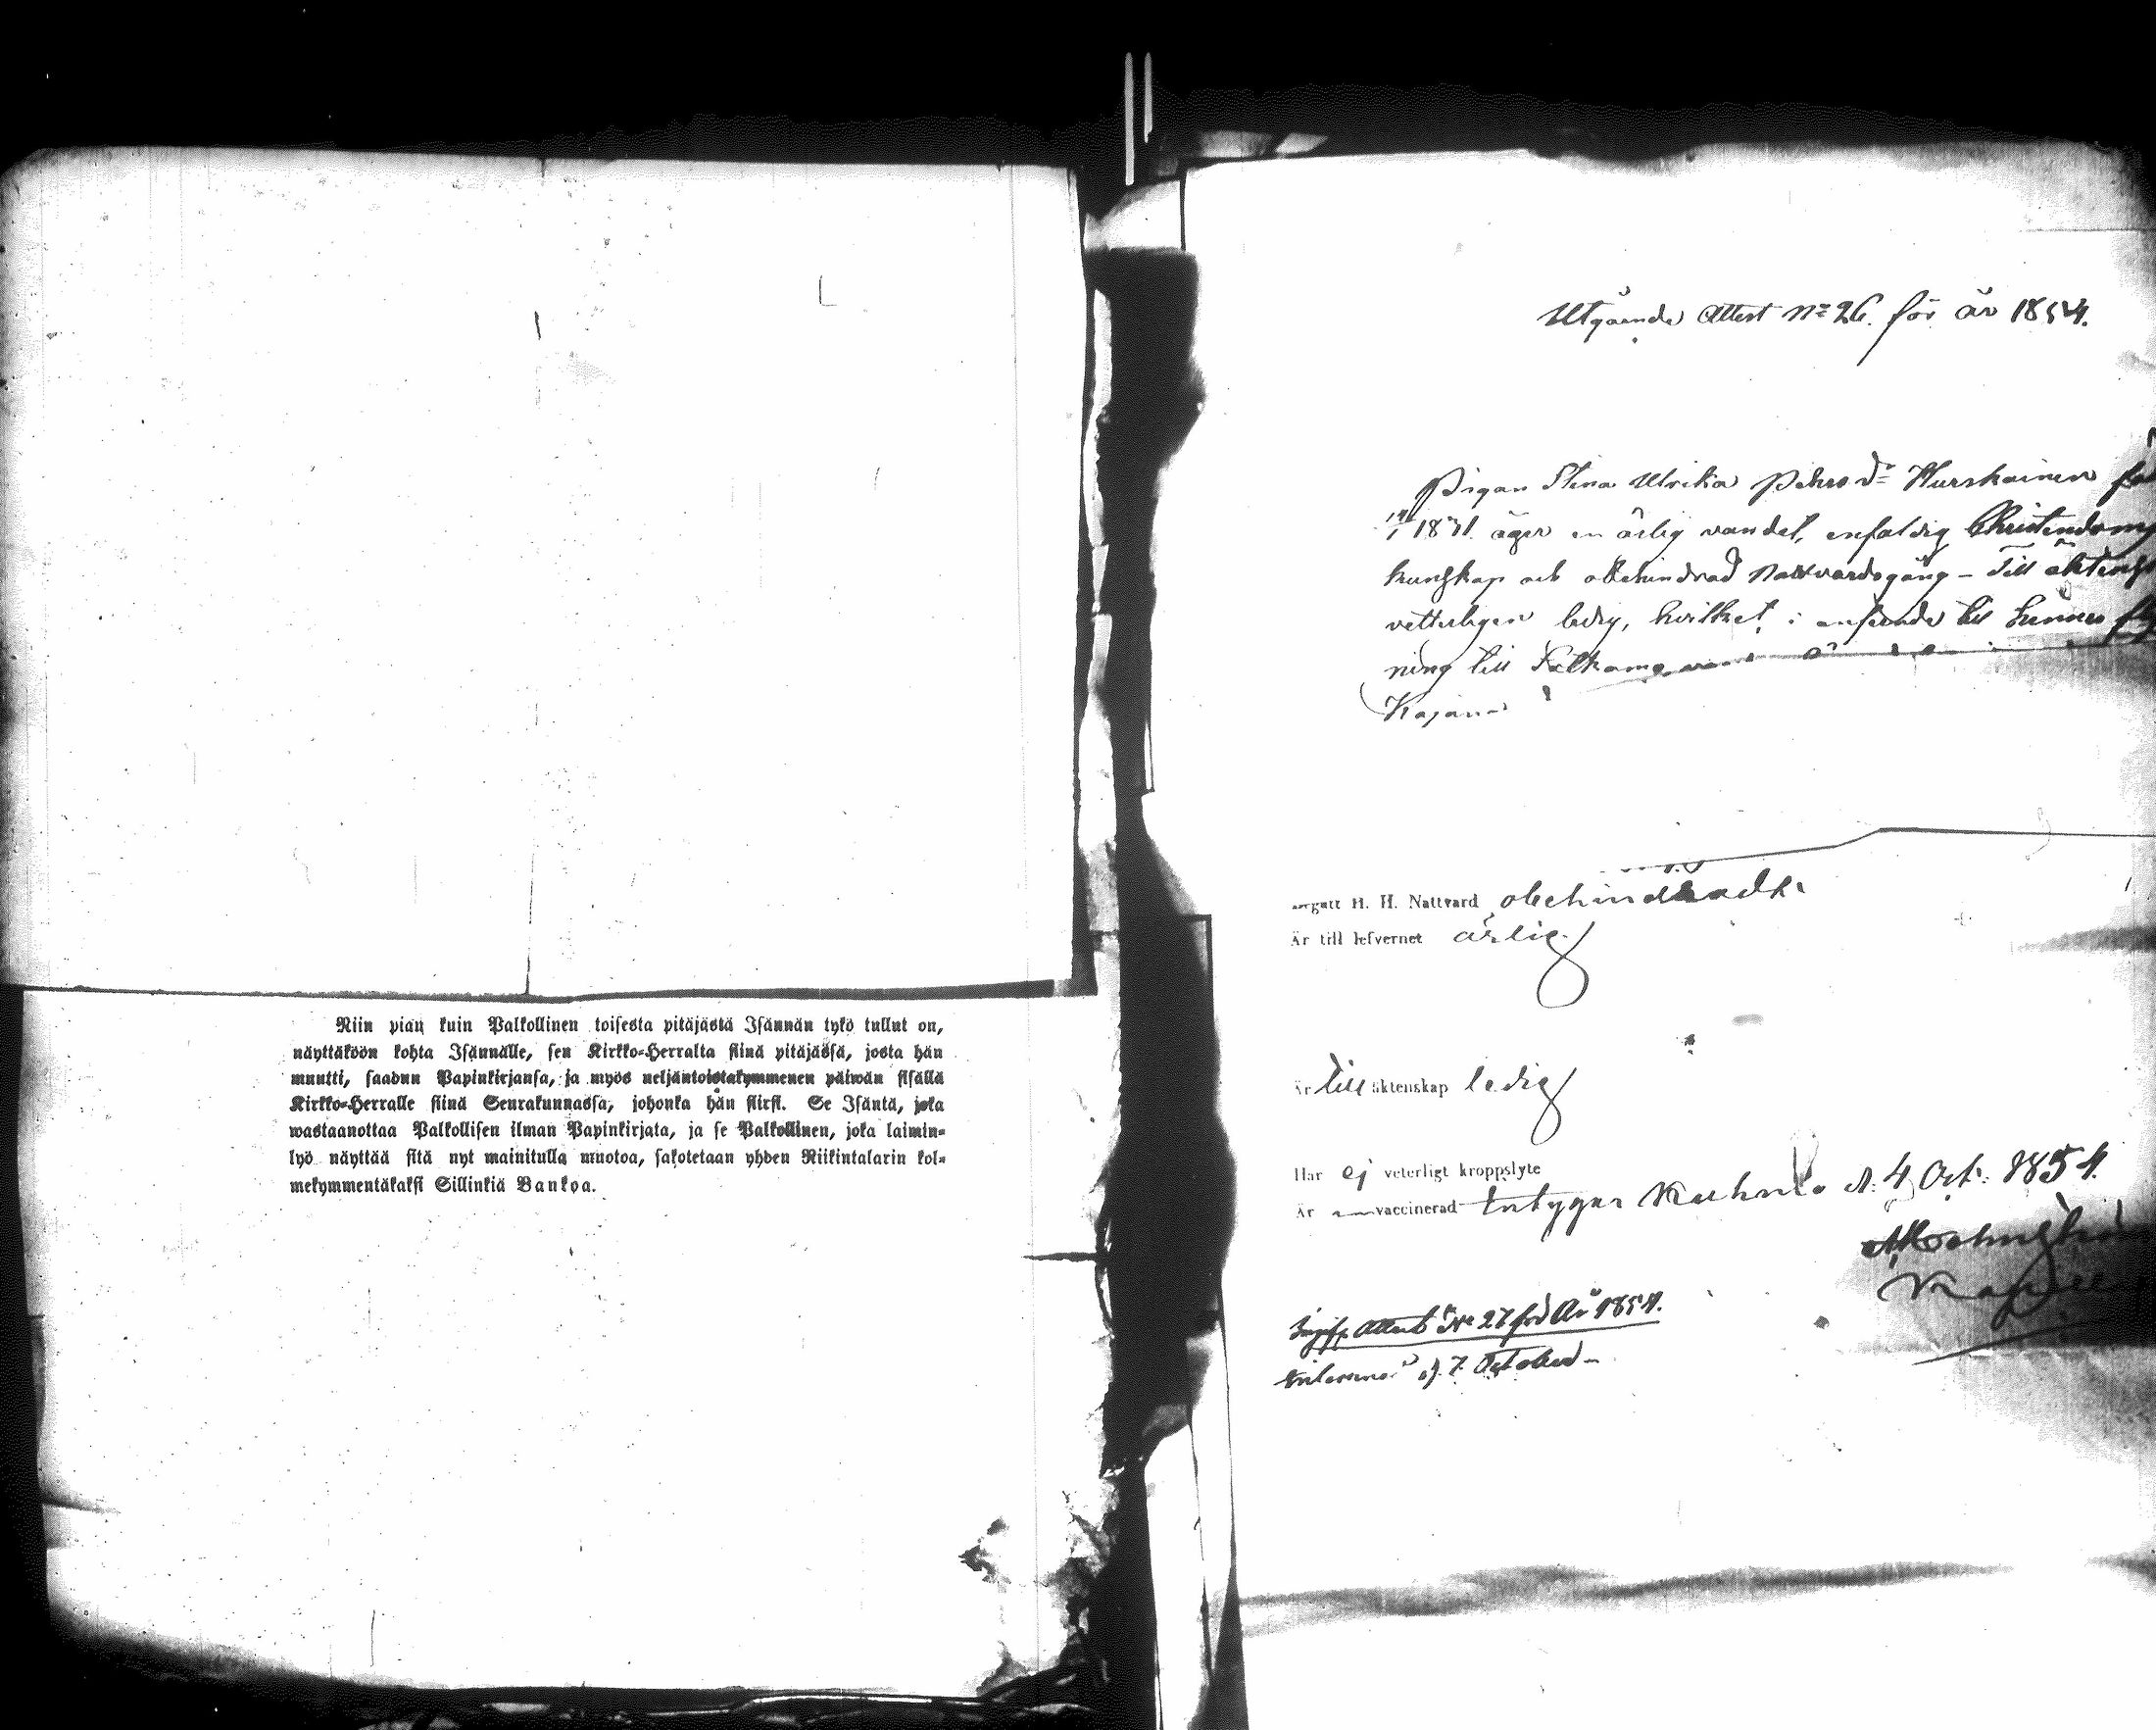 Niin pian kuin Palkollinen toisesta pitäjästä Isännän tykö tullut on,
näyttäköön kohta Isännälle, sen Kirkko-Herralta siinä pitäjässä, josta hän
muutti, saadun Papinkirjansa, ja myös neljäntoistakymmenen päiwän sisällä
Kirkko-Herralle siinä Seurakunnassa, johonka hän siirsi. Se Isäntä, joka
wastaanottaa Palkollisen ilman Papinkirjata, ja se Palkollinen, joka laimin-
lyö näyttää sitä nyt mainitulla muotoa, sakotetaan yhden Riikintalarin kol-
mekymmentäkaksi Sillinkiä Bankoa.
Utgående Attest No 26. för år 1854.
Pigan Stina Ulrika Pehrsdr Hurskainen
1831. äger en ärlig vandel, enfaldig Christendoms
kunskap och obehindrad Nattvardsgång - Till äktensk
vetterligen ledig, hvilket i anseende till hennes
ning till
Kajana
H. H. Nattvard obehindradt.
Är till lefvernet ärlig
Är till äktenskap ledig
Har ej veterligt kroppslyte
Är vaccinerad Intygar Kuhmo d. 4 Oct: 1854.
Attest No 27 för År 1854.
d 7 October